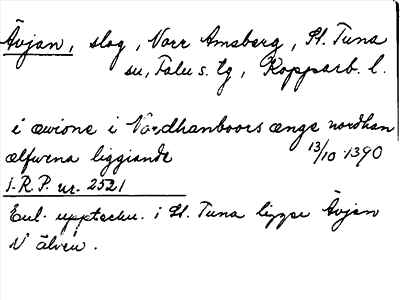 Ävjan, slog, Norr Amsberg, St. Tuna
su, Falu s. tg, Kopparb. l.
i æwione i Nordhanboors ænge nordhan
ælfwena liggiande 13/10 1390
S.R.P. nr. 2521
Enl. uppteckn. i St. Tuna ligger Ävjan
N älven.